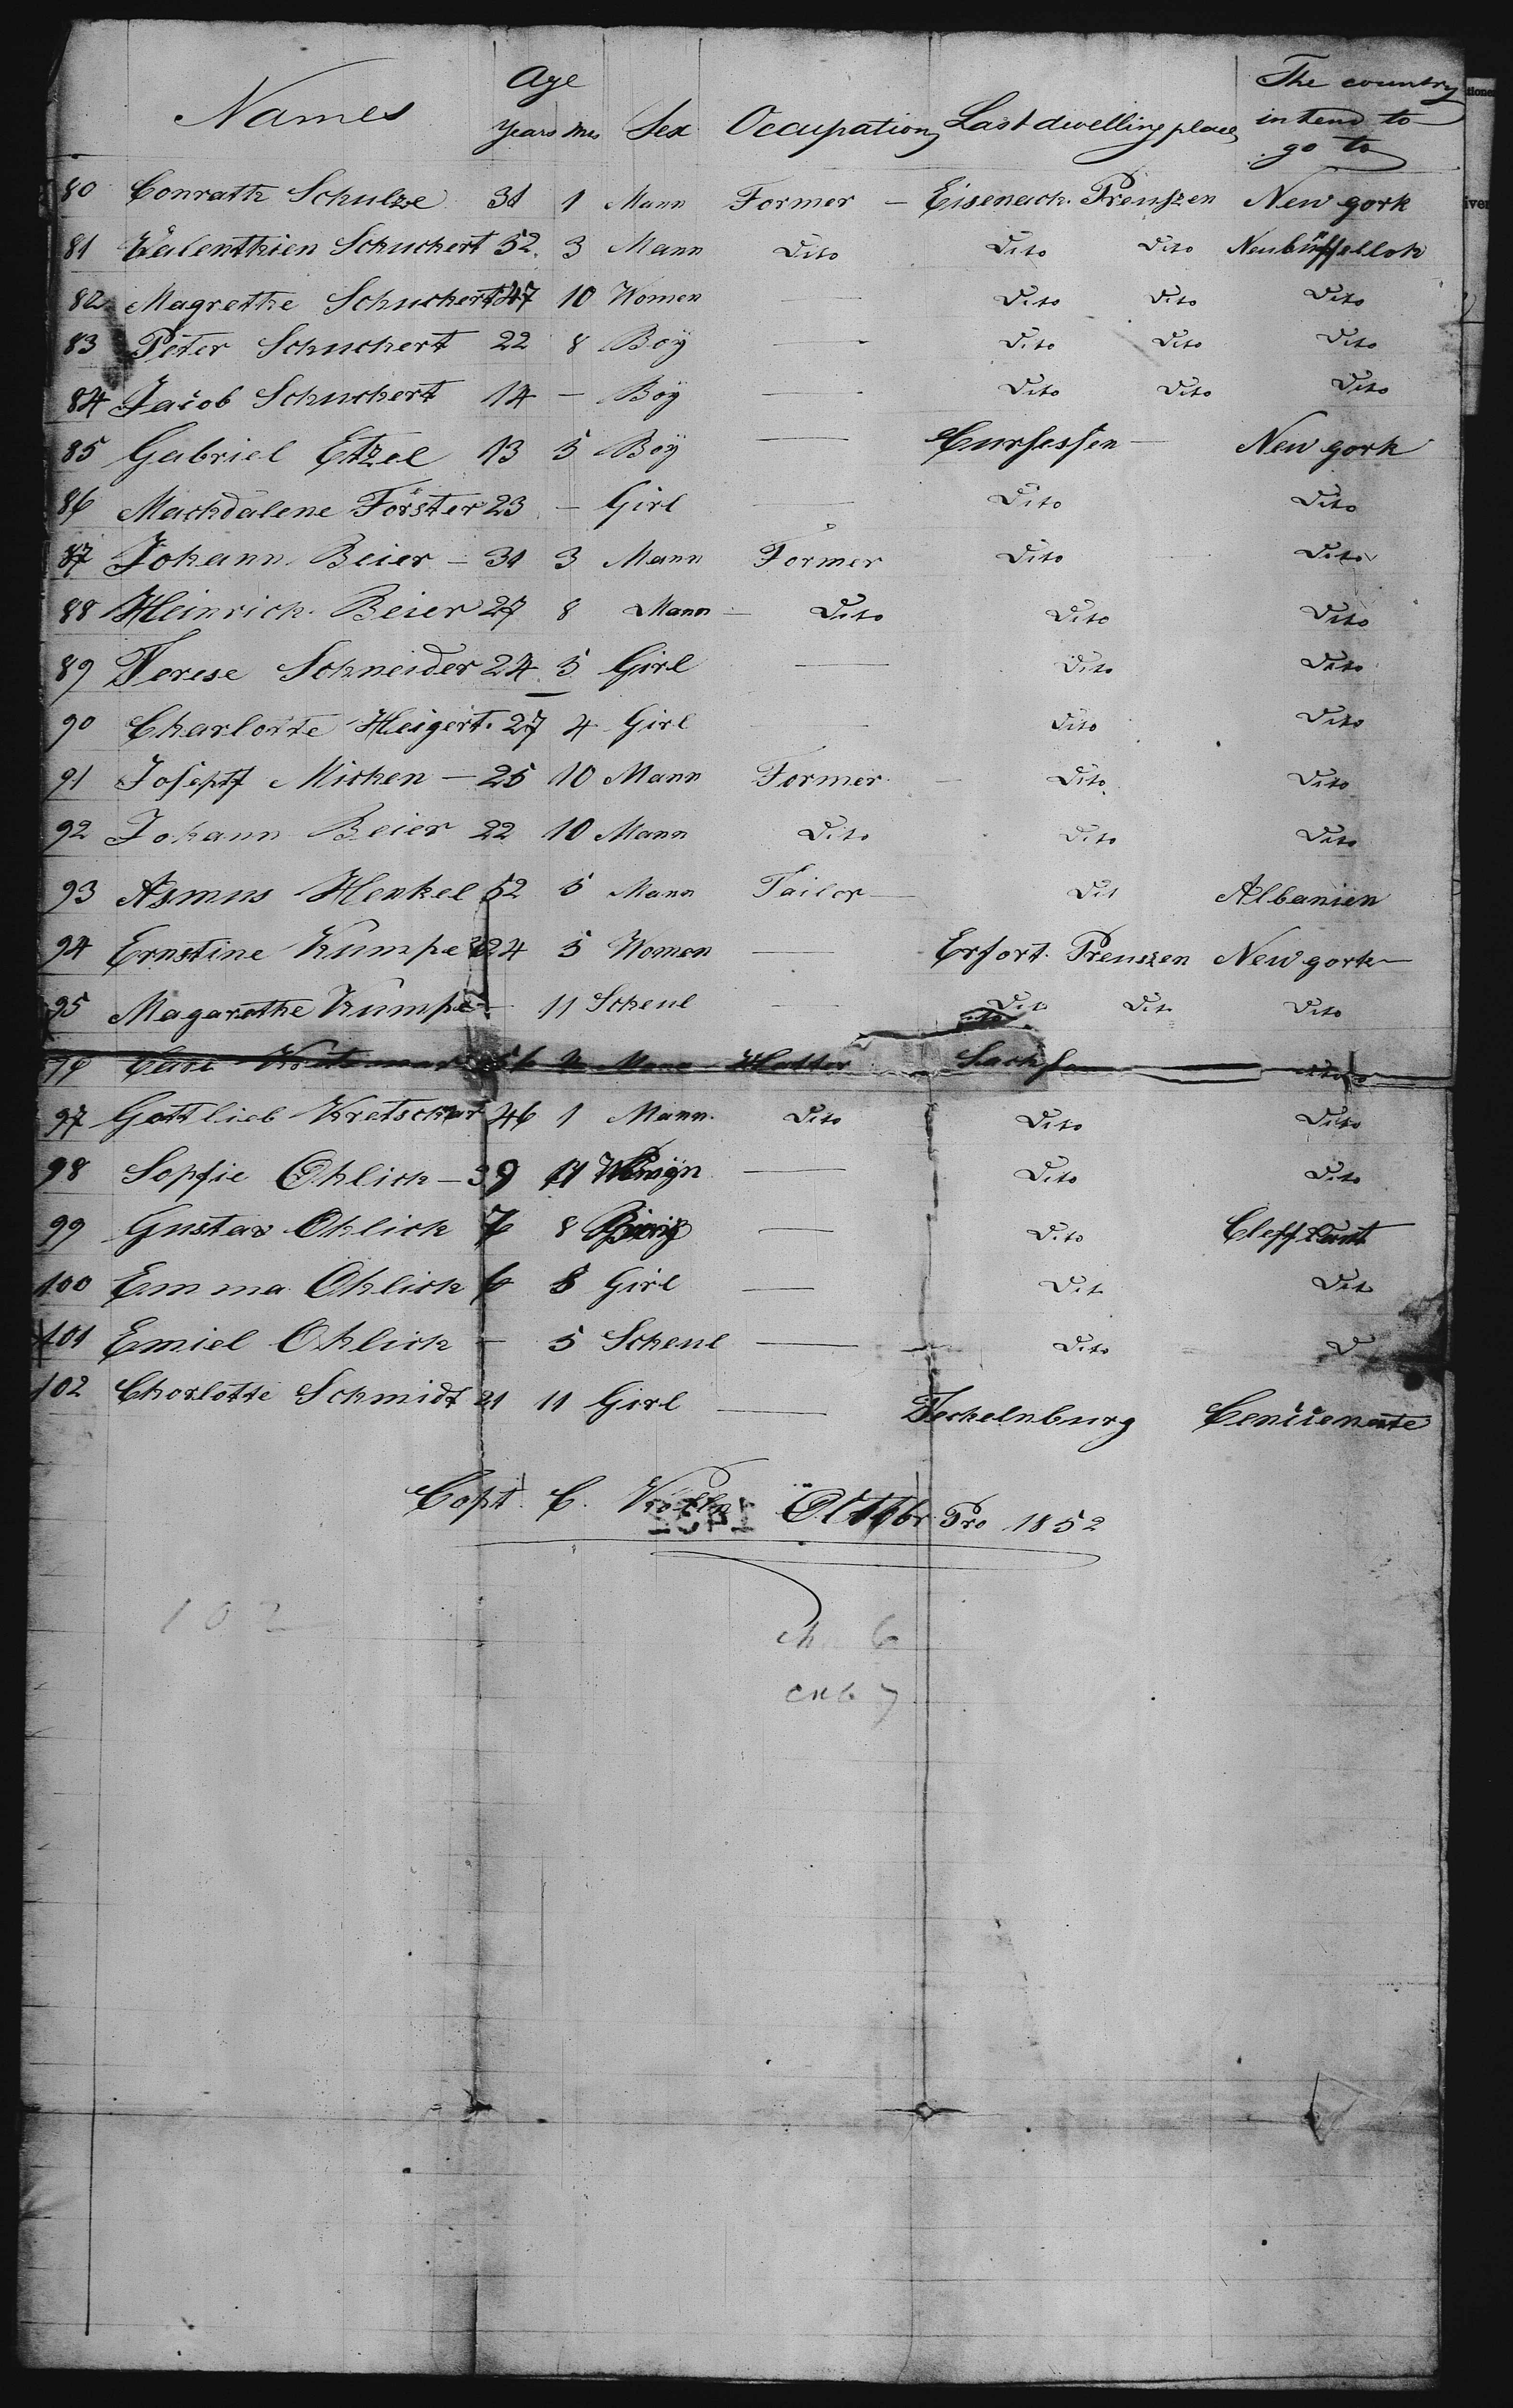 Names Age Years Mns Sex Occupation Last dwelling place The country intend to go to
80 Conrath Schulze 31 1 Mann Former — Eisenach Preuszen New york
81 Valenthien Schuchert 52. 3 Mann Dito Dito Dito Neubüffellok
82 Magrethe Schuchert 47 10 Women — Dito Dito Dito
83 Peter Schuchert 22 8 Boÿ — Dito Dito Dito
84 Jacob Schuchert 14 — Boÿ — Dito Dito Dito
85 Gabriel Etzel 13 5 Boÿ — Curhessen — New york
86 Machdalene Förster 23 — Girl — Dito Dito
87 Johann Beier — 31 3 Mann Former Dito Dito
88 Heinrich Beier 27 8 Mann — Dito Dito Dito
89 Terese Schneider 24 5 Girl — Dito Dito
90 Charlotte Heigert. 27 4 Girl — Dito Dito
91 Joseptf Michen — 25 10 Mann Former — Dito Dito
92 Johann Beier 22 10 Mann Dito Dito Dito
93 Asmus Henkel 52 5 Mann Tailor — Dit Albanien
94 Ernstine Kumpe 24 5 Women — Erfort. Preuszen New york —
95 Magarethe Kumpe — 11 Scheul — Dit Dit Dito
96 Carl Mann Hatter Sachsen
97 Gottlieb Kretschar 46 1 Mann. Dito Dito Dito
98 Sopfie Ohlich — 39 11 — Dito Dito
99 Gustav Ohlich 7 8 — Dito
100 Emma Ohlich 6 8 Girl — Dit Dit
101 Emiel Ohlich — 5 Scheul — Dito D
102 Chorlotte Schmidt 21 11 Girl — Teckelnburg Cencienate
Capt. C. Octobr Pro 1852
102
6
7